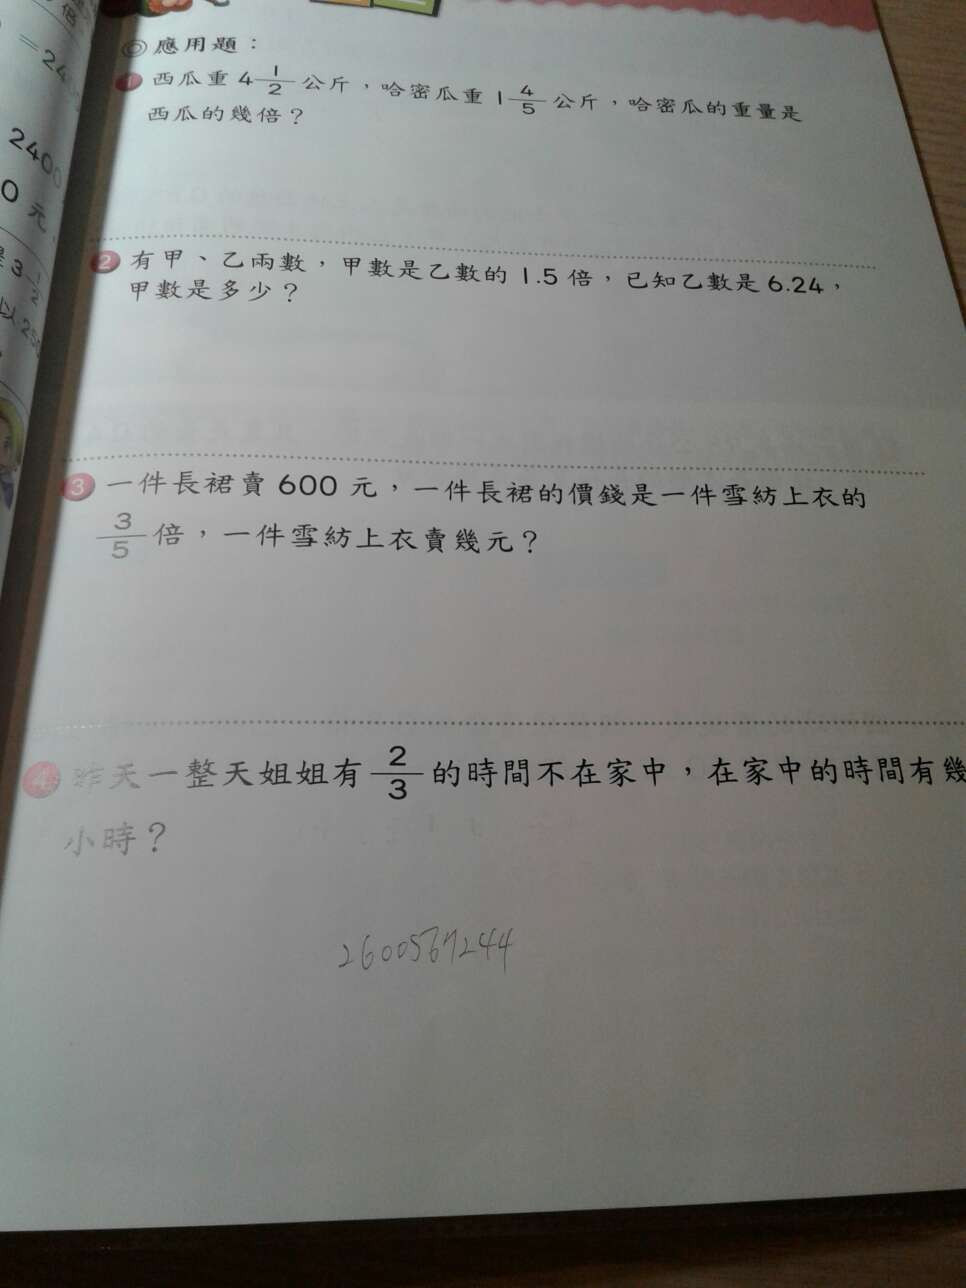 倍
=24
2400
0元
是3 1/2
以250
◎應用題：
1 西瓜重 4 1/2 公斤，哈密瓜重 1 4/5 公斤，哈密瓜的重量是
西瓜的幾倍？
2 有甲、乙兩數，甲數是乙數的 1.5 倍，已知乙數是 6.24，
甲數是多少？
3 一件長裙賣 600 元，一件長裙的價錢是一件雪紡上衣的
3/5 倍，一件雪紡上衣賣幾元？
4 昨天一整天姐姐有 2/3 的時間不在家中，在家中的時間有幾
小時？
2600567244